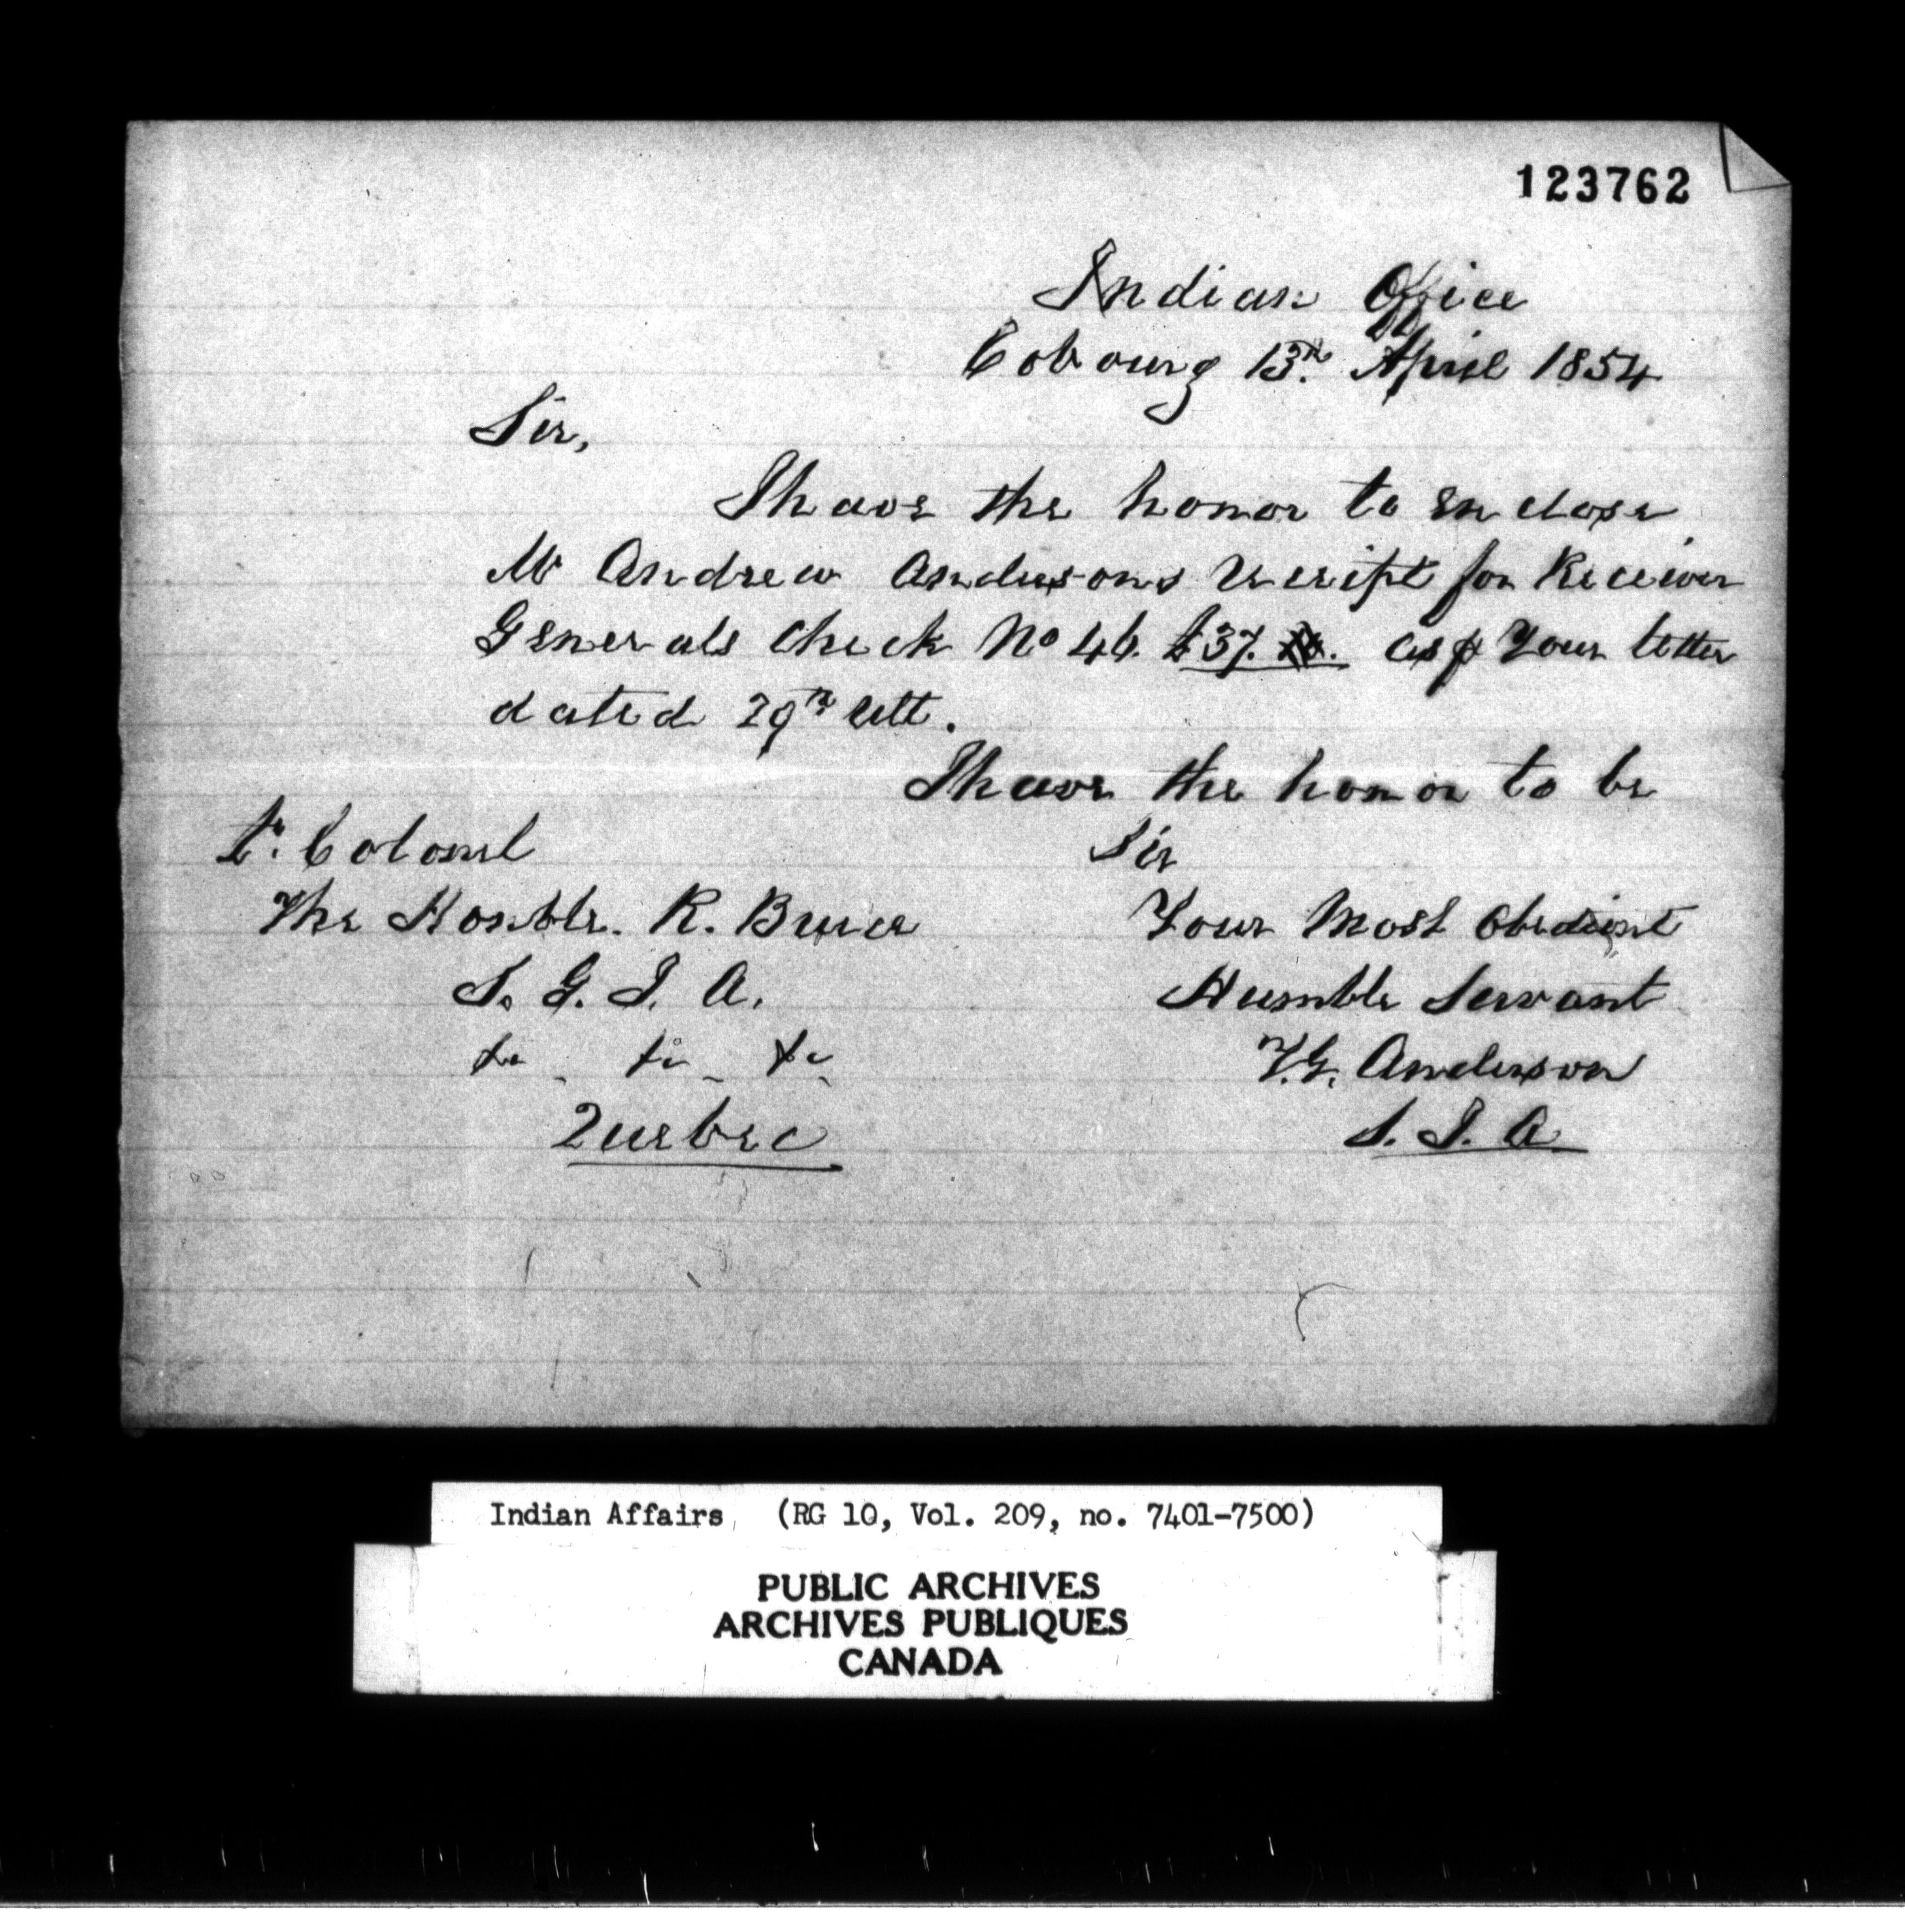 123762
Indian Office
Cobourg 13th April 1854
Sir,
I have the honor to enclose
Mr Andrew Andersons receipt for Receiver
Generals Check No 46. £37. as p Your letter
dated 29th Ult.
I have the honor to be
Sir
Lt. Colonel
The Honble. R. Bruce
S. G. I. A.
&c &c &c
Quebec
Your Most Obedient
Humble Servant
T. G. Anderson
S. I. A
Indian Affairs (RG 10, Vol. 209, no. 7401-7500)
PUBLIC ARCHIVES
ARCHIVES PUBLIQUES
CANADA